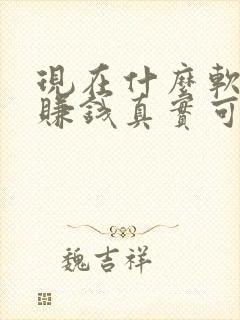 現在什麼軟
賺錢真實可
魏吉祥